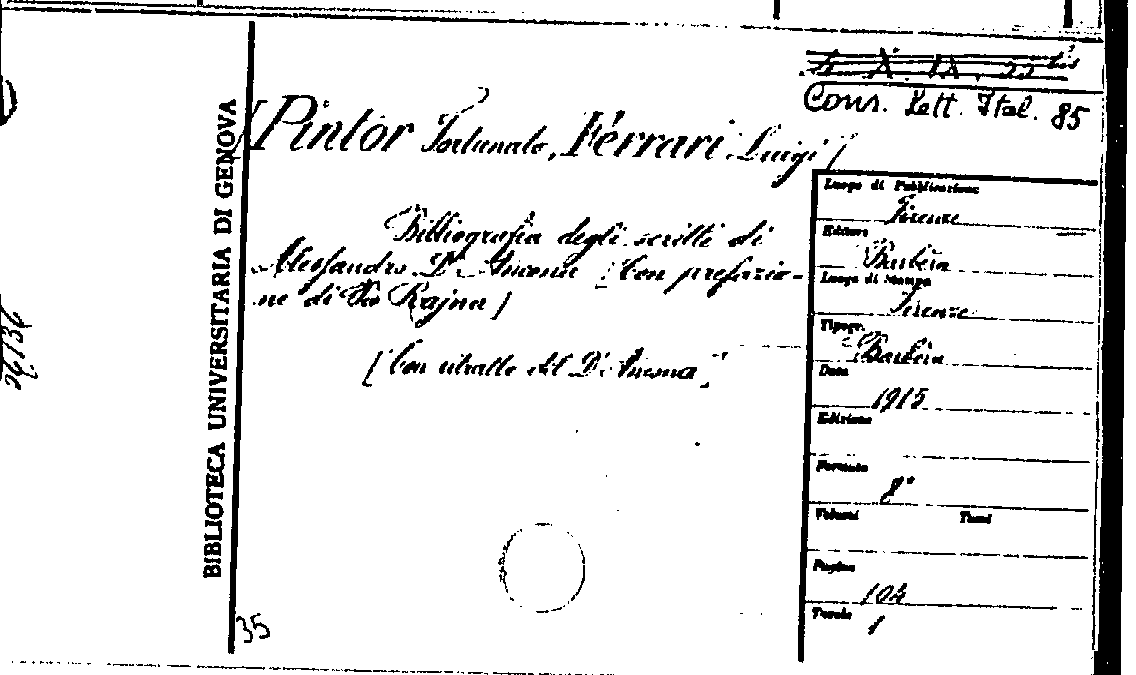 Cons. Lett. Ital. 85
[Pintor Fortunato, Ferrari Luigi]
Bibliografia degli scritti di
Alessandro D'Ancona [Con prefazio-
ne di Pio Rajna]
[Con ritratto del D'Ancona]
BIBLIOTECA UNIVERSITARIA DI GENOVA
35
Luogo di Pubblicazione
Firenze
Editore
Barbèra
Luogo di Stampa
Firenze
Tipogr.
Barbèra
Data
1915
Edizione
Formato
8°
Volumi Tomi
Pagine
104
Tavole
1